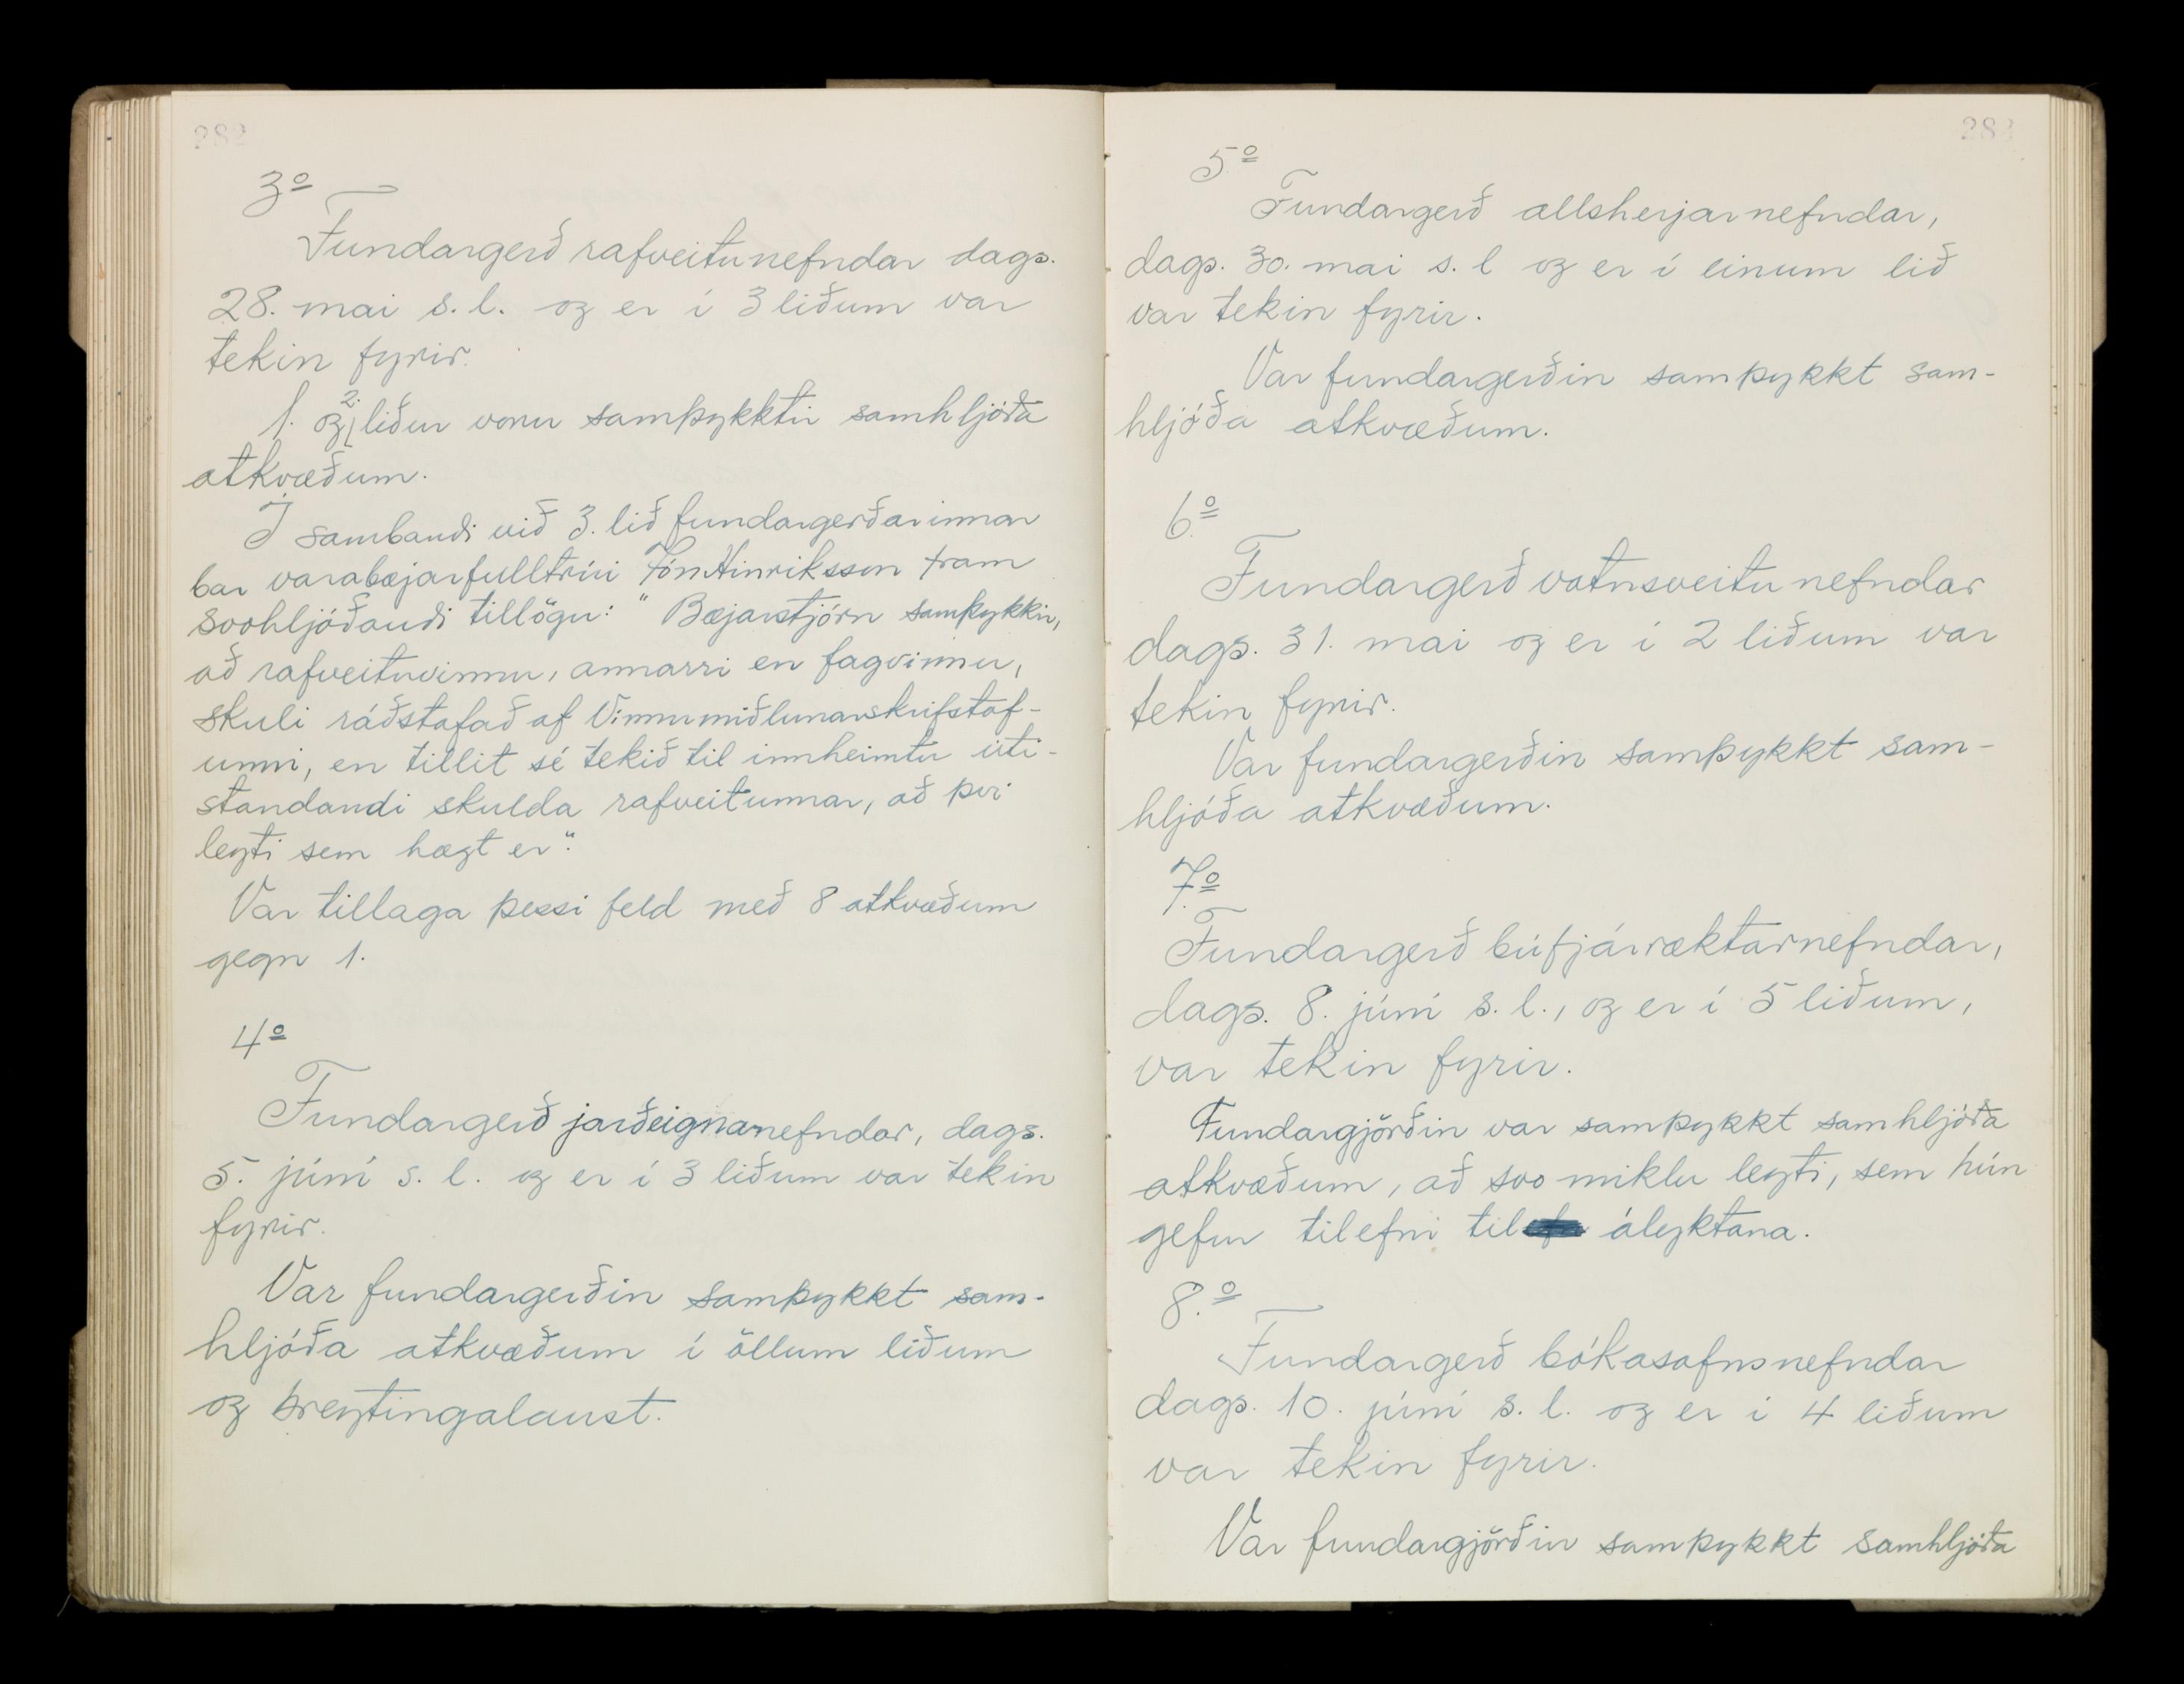 282
3º
Fundargerð rafveitunefndar dags.
28. mai s.l. og er í 3 liðum var
tekin fyrir.
1. og 2. liður voru samþykktir samhljóða
atkvæðum.
Í sambandi við 3. lið fundargerðarinnar
bar varabæjarfulltrúi Jón Hinriksson fram
svohljóðandi tillögu: "Bæjarstjórn samþykkir,
að rafveituvinnu, annarri en fagvinnu,
skuli ráðstafað af Vinnumiðlunarskrifstof-
unni, en tillit sé tekið til innheimtu úti-
standandi skulda rafveitunnar, að því
leyti sem hægt er".
Var tillaga þessi feld með 8 atkvæðum
gegn 1.
4º
Fundargerð jarðeignanefndar, dags.
5. júní s.l. og er í 3 liðum var tekin
fyrir.
Var fundargerðin samþykkt sam-
hljóða atkvæðum í öllum liðum
og breytingalaust.
283
5.º
Fundargerð allsherjarnefndar,
dags. 30. mai s.l og er í einum lið
var tekin fyrir.
Var fundargerðin samþykkt sam-
hljóða atkvæðum.
6.º
Fundargerð vatnsveitunefndar
dags. 31. mai og er í 2 liðum var
tekin fyrir.
Var fundargerðin samþykkt sam-
hljóða atkvæðum.
7.º
Fundargerð búfjárræktarnefndar,
dags. 8. júní s.l., og er í 5 liðum,
var tekin fyrir.
Fundargjörðin var samþykkt samhljóða
atkvæðum, að svo miklu leyti, sem hún
gefur tilefni til ályktana.
8.º
Fundargerð bókasafnsnefndar
dags. 10. júní s.l. og er í 4 liðum
var tekin fyrir.
Var fundargjörðin samþykkt samhljóða